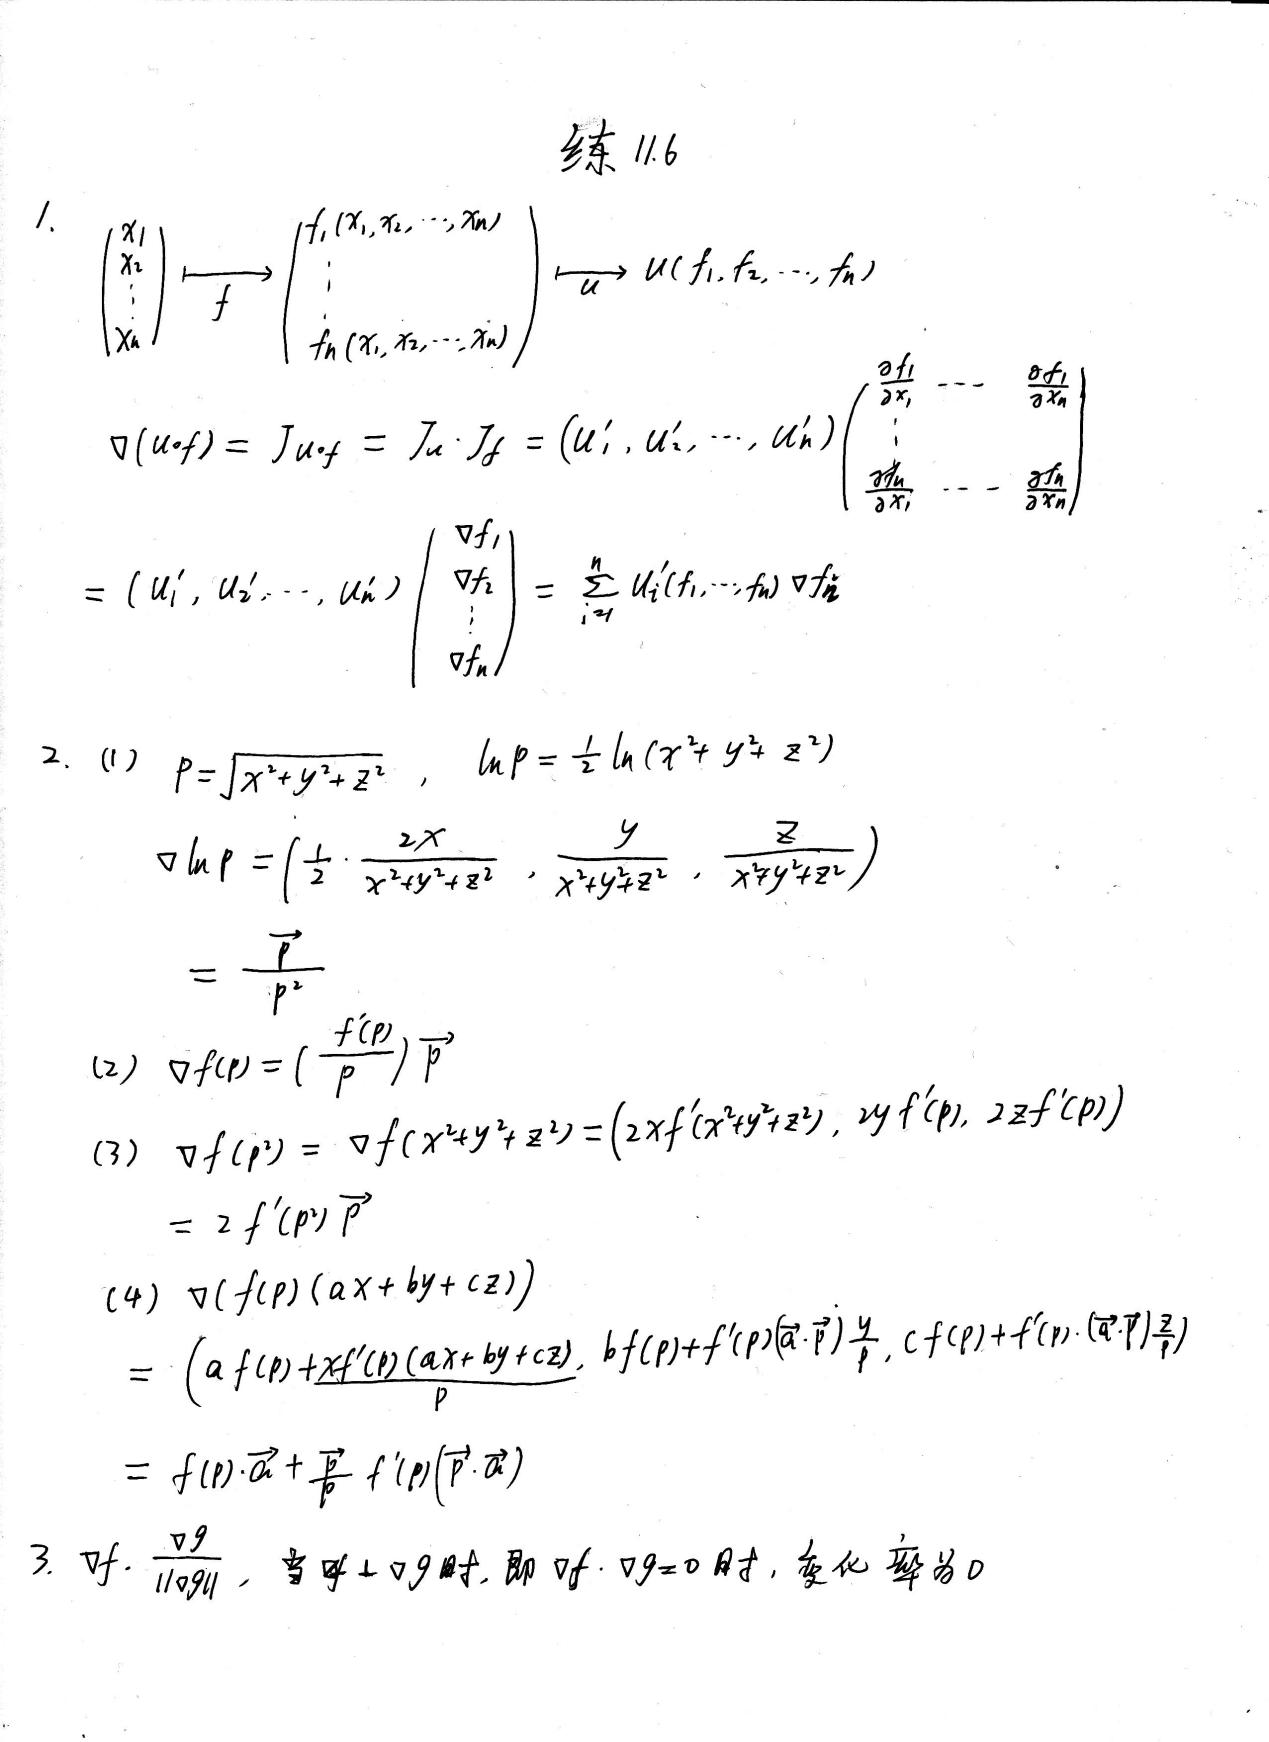 练 11.6
1. (x₁ x₂ ⋮ xₙ) ⟼f (f₁(x₁, x₂, ⋯, xₙ) ⋮ fₙ(x₁, x₂, ⋯, xₙ)) ⟼u u(f₁, f₂, ⋯, fₙ)
∇(u∘f) = J u∘f = Jᵤ · J_f = (u₁′, u₂′, ⋯, uₙ′) (∂f₁/∂x₁ ⋯ ∂f₁/∂xₙ ⋮ ∂fₙ/∂x₁ ⋯ ∂fₙ/∂xₙ)
= (u₁′, u₂′, ⋯, uₙ′) (∇f₁ ∇f₂ ⋮ ∇fₙ) = Σⁿᵢ₌₁ uᵢ′(f₁, ⋯, fₙ) ∇fᵢ
2. (1) p = √(x²+y²+z²) , ln p = ½ ln(x²+y²+z²)
∇ ln p = (½ · 2x/(x²+y²+z²) , y/(x²+y²+z²) , z/(x²+y²+z²))
= p⃗/p²
(2) ∇f(p) = (f′(p)/p) p⃗
(3) ∇f(p²) = ∇f(x²+y²+z²) = (2xf′(x²+y²+z²), 2yf′(p), 2zf′(p))
= 2f′(p²) p⃗
(4) ∇(f(p)(ax+by+cz))
= (af(p) + xf′(p)(ax+by+cz)/p, bf(p)+f′(p)(a⃗·p⃗) y/p, cf(p)+f′(p)·(a⃗·p⃗) z/p)
= f(p)·a⃗ + p⃗/p f′(p)(p⃗·a⃗)
3. ∇f · ∇g/||∇g|| , 当 ∇f ⊥ ∇g 时, 即 ∇f · ∇g=0 时, 变化率为0